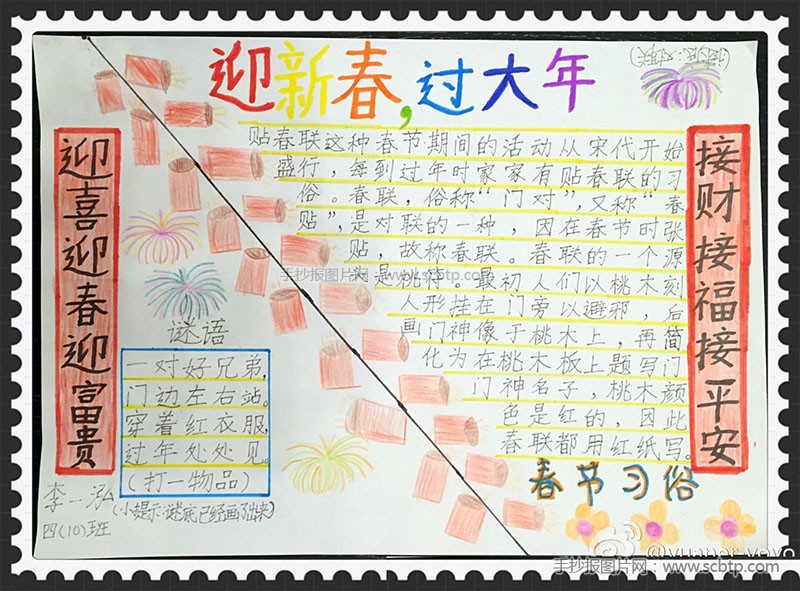 迎新春,过大年
(谜底:对联)
迎喜迎春迎富贵
接财接福接平安
贴春联这种春节期间的活动从宋代开始
盛行，每到过年时家家有贴春联的习
俗。春联，俗称“门对”，又称“春
贴”，是对联的一种，因在春节时张
贴，故称春联。春联的一个源
为是桃符。最初人们以桃木刻
人形挂在门旁以避邪，后
画门神像于桃木上，再简
化为在桃木板上题写门
门神名子，桃木颜
色是红的，因此
春联都用红纸写。
春节习俗
谜语
一对好兄弟,
门边左右站。
穿着红衣服,
过年处处见。
(打一物品)
(小提示:谜底已经画了出来)
李一泓
四(10)班
手抄报图片网：www.scbtp.com
@yuaner_yoyo
手抄报图片网：www.scbtp.com